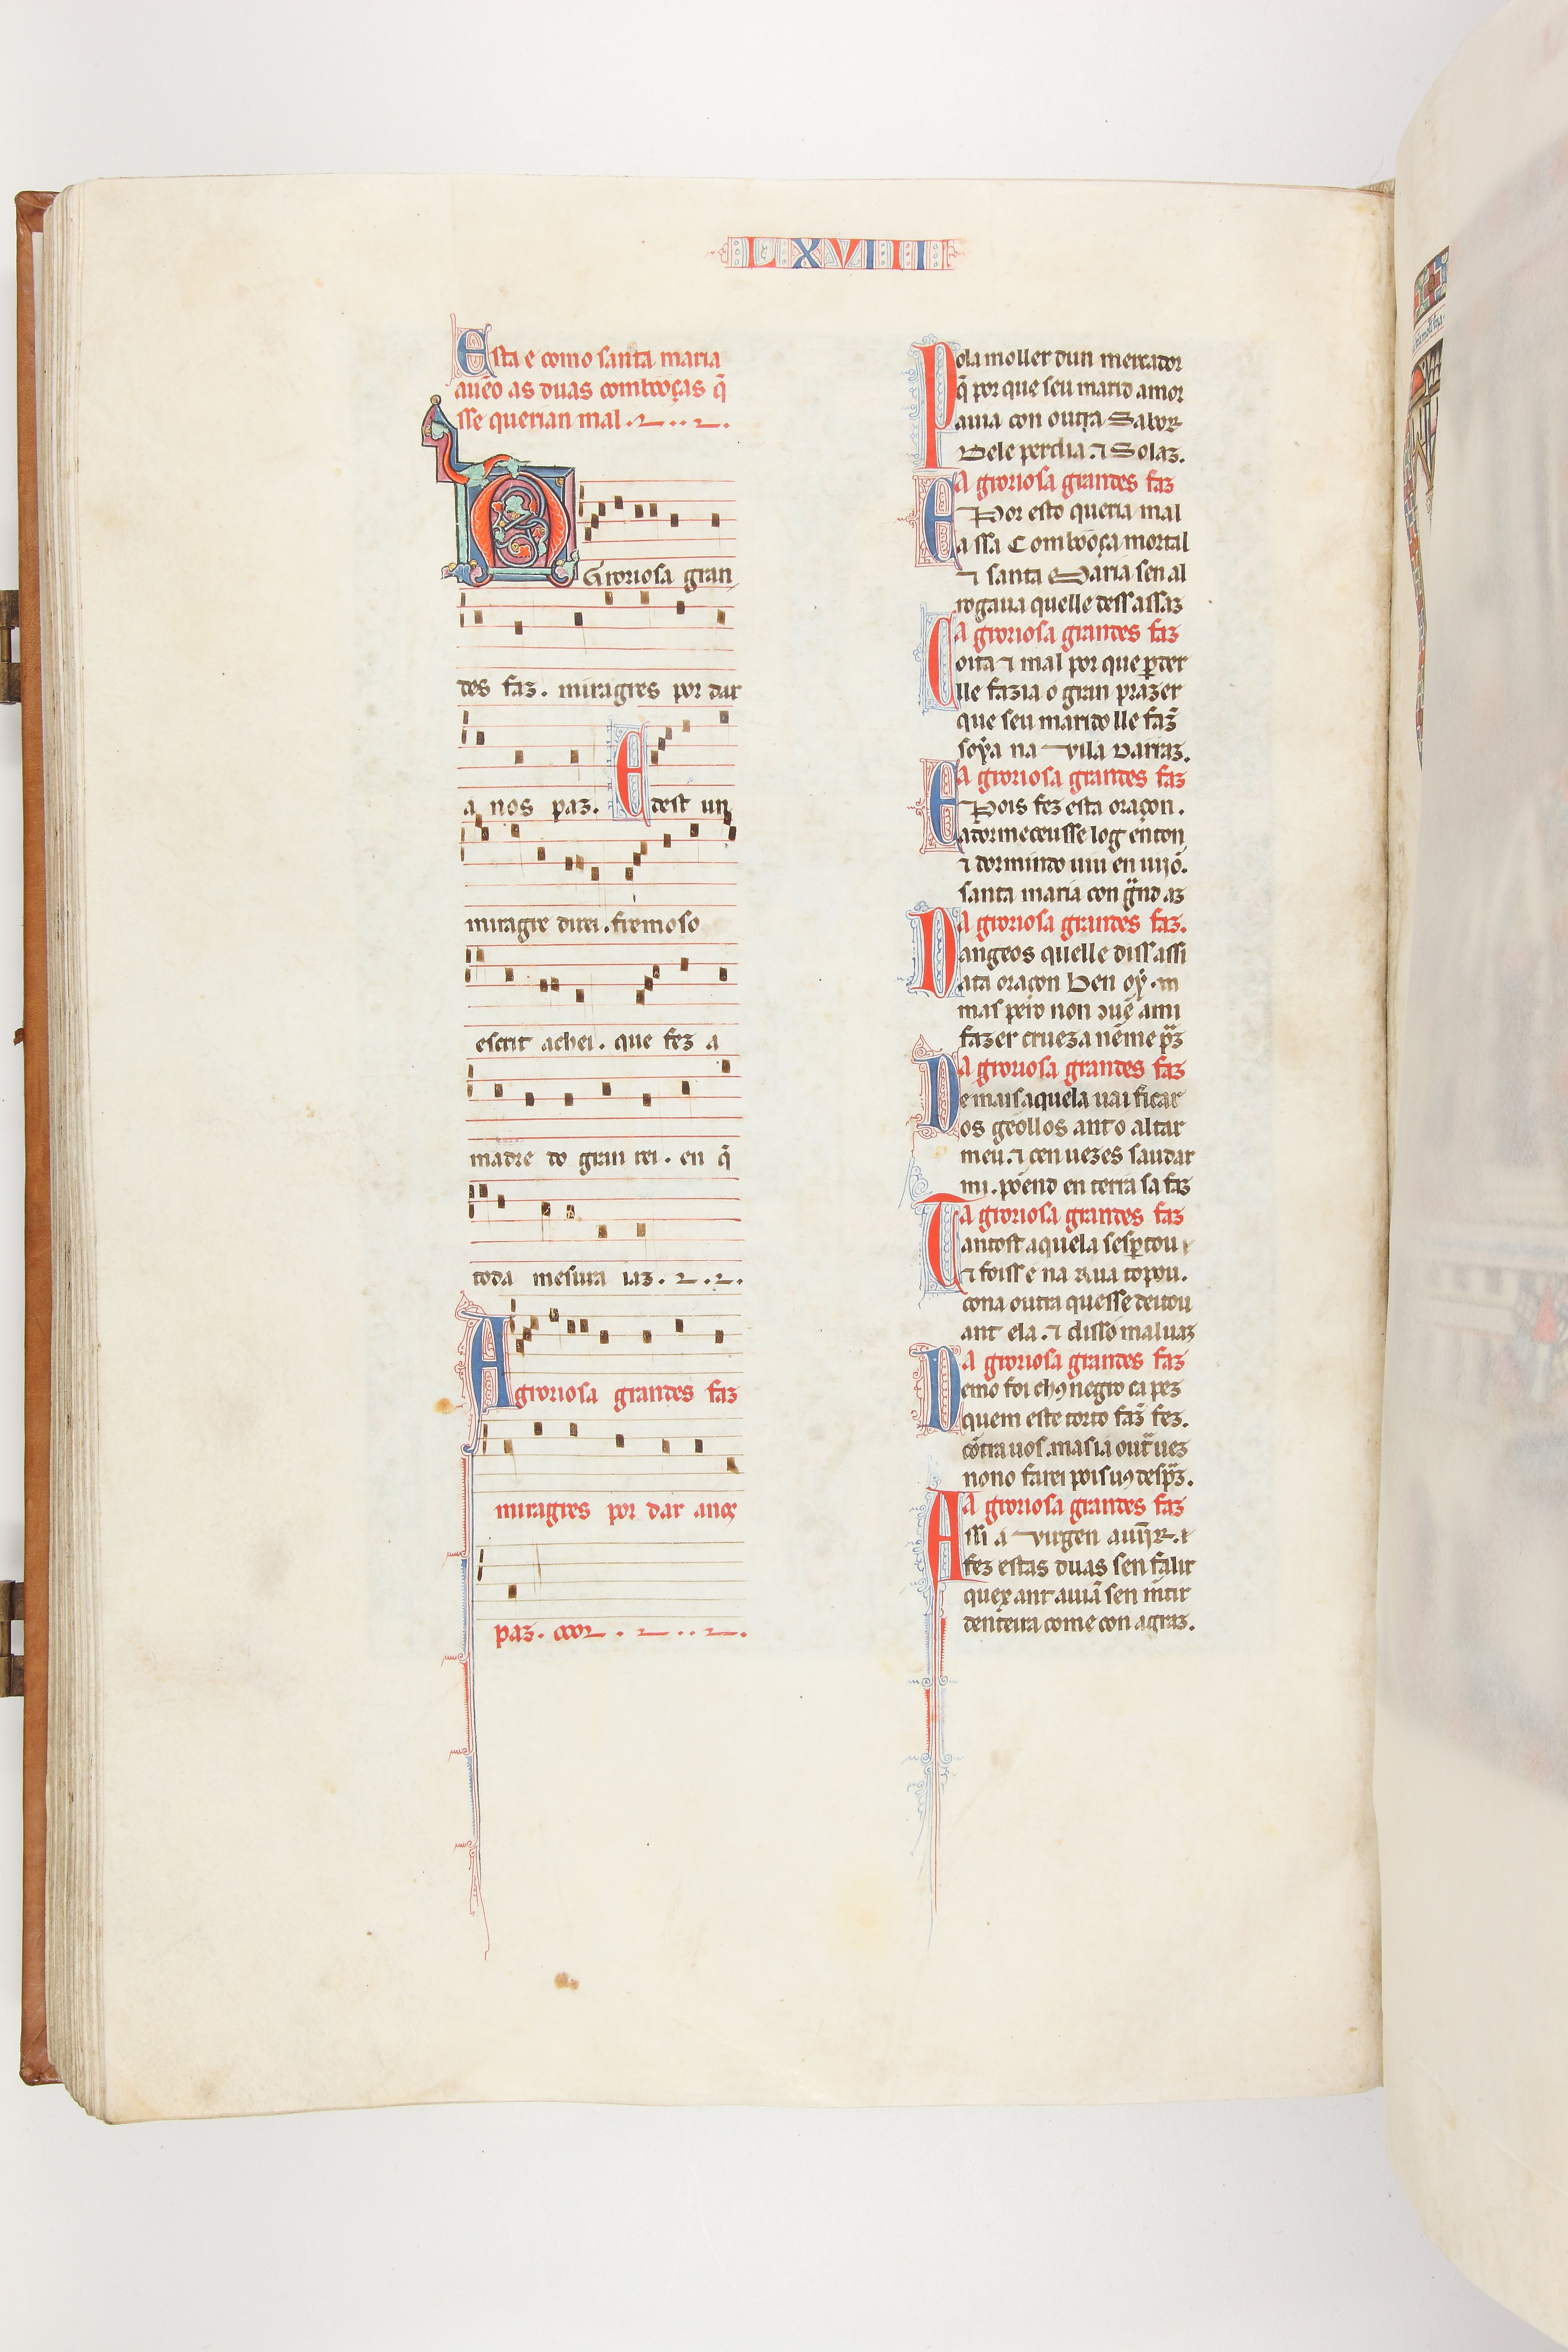 LXVIII
Esta e como santa maria
auẽo as duas combooças q̃
sse querian mal.
A Groriosa gran
des faz. miragres por dar
a nos paz. E dest un
miragre direi. fremoso
escrit achei. que fez a
madre do gran rei. en q̃
toda mesura iaz.
A groriosa grandes faz
miragres por dar anos
paz.
Pola moller dun mercador
q̃ por que seu marid amor
auia con outra Sabor
Dele perdia. ⁊ Solaz.
A groriosa grandes faz
E Por esto queria mal
a ssa Combooça mortal
⁊ santa Maria sen al
rogaua quelle dess assaz
A groriosa grandes faz
Coita ⁊ mal por que ꝑder
lle fazia o gran prazer
que seu marido lle faz̃
soya na Vila Darraz.
A groriosa grandes faz
E Pois fez esta oraçon.
adormeceusse log enton
⁊ dormindo uiu en uijõ.
santa maria con
A groriosa grandes faz.
Dangeos quelle diss assi
a ta oraçon ben oỹ.
mas pero non ami
fazer crueza nẽ me
A groriosa grandes faz
De mais aquela uai ficar
os geollos ant o altar
meu. ⁊ cen uezes saudar
mi. põend en terra sa faz
A groriosa grandes faz
Tantost aquela sesꝑtou
⁊ foiss e na Rua topou.
cona outra quesse deitou
ant ela. ⁊ disso maluaz
A groriosa grandes faz
Demo foi chꝯ negro ca pez
quem este torto faz̃ fez.
cõtra uos. mas ia
nono farei pois uꝯ
A groriosa grandes faz
Assi a Virgen
fez estas duas sen falir
quex ant auiã sen
denteira come con agraz.